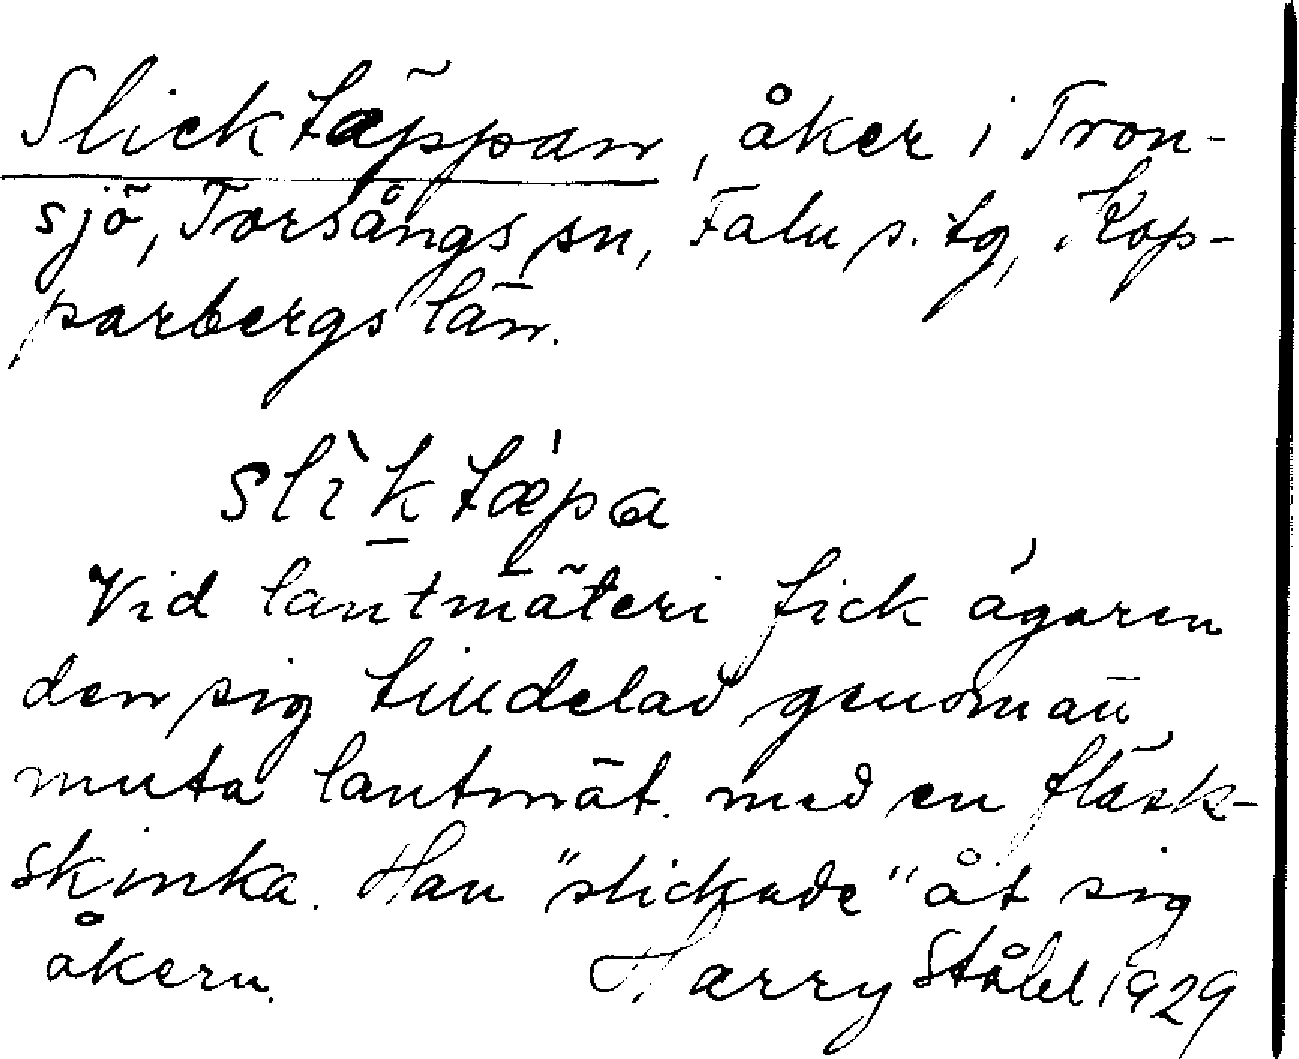 Slicktäppan, åker i Tron-
sjö, Torsångs sn, Falu s. tg, Kop-
parbergs län.
slìktæ̀pa
Vid lantmäteri fick ägaren
den sig tilldelad genom att
muta lantmät. med en fläsk-
skinka. Han "slickade" åt sig
åkern.
Harry Ståhl 1929